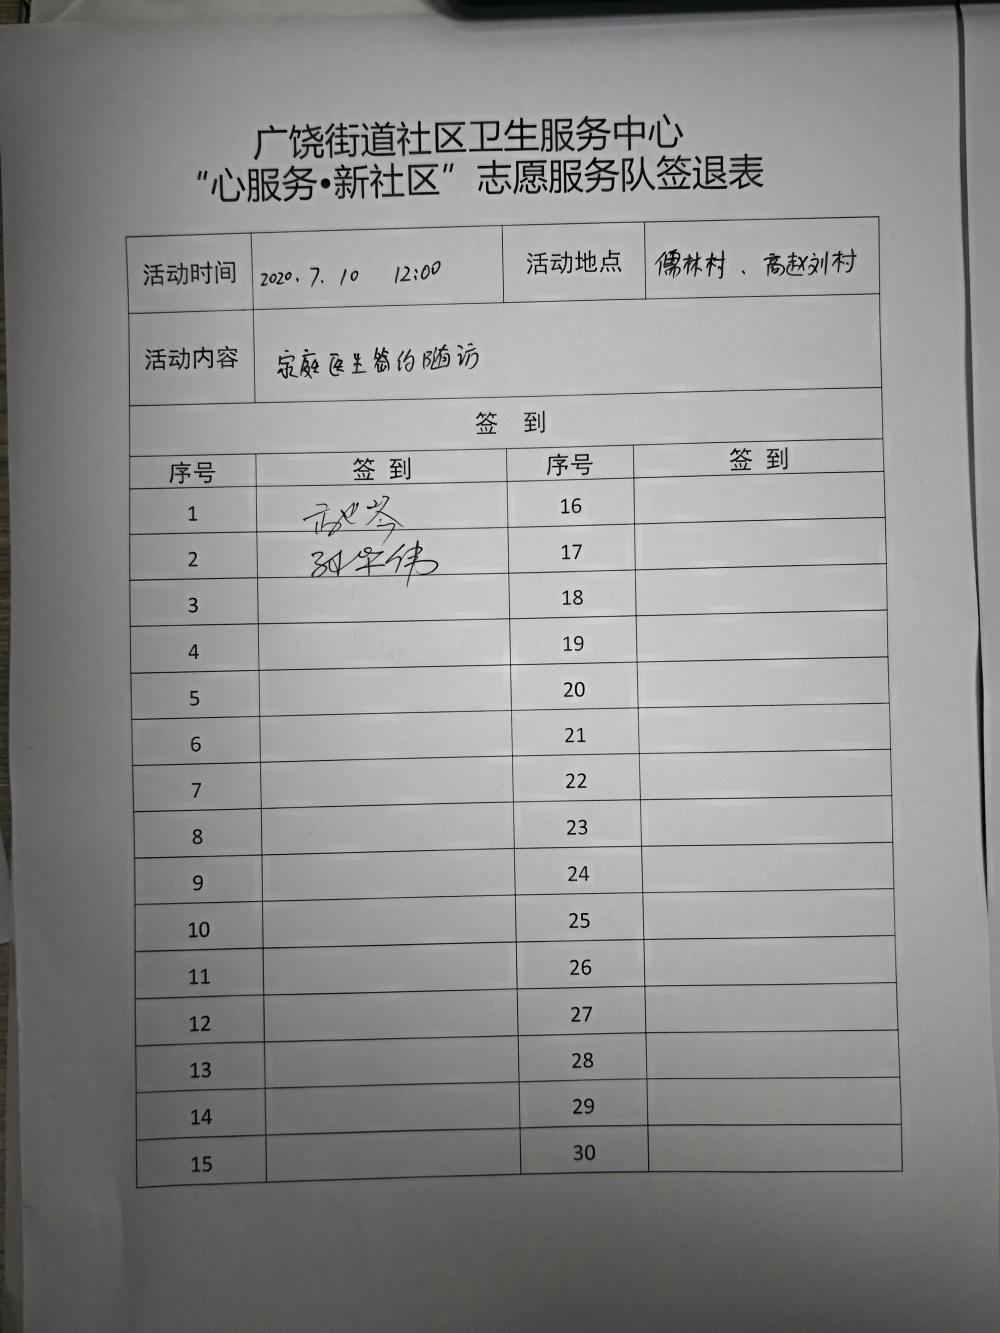 广饶街道社区卫生服务中心
“心服务•新社区”志愿服务队签退表
活动时间 2020.7.10 12:00 活动地点 儒林村、高赵刘村
活动内容 家庭医生签约随访
签 到
序号 签 到 序号 签 到
1 16
2 17
3 18
4 19
5 20
6 21
7 22
8 23
9 24
10 25
11 26
12 27
13 28
14 29
15 30